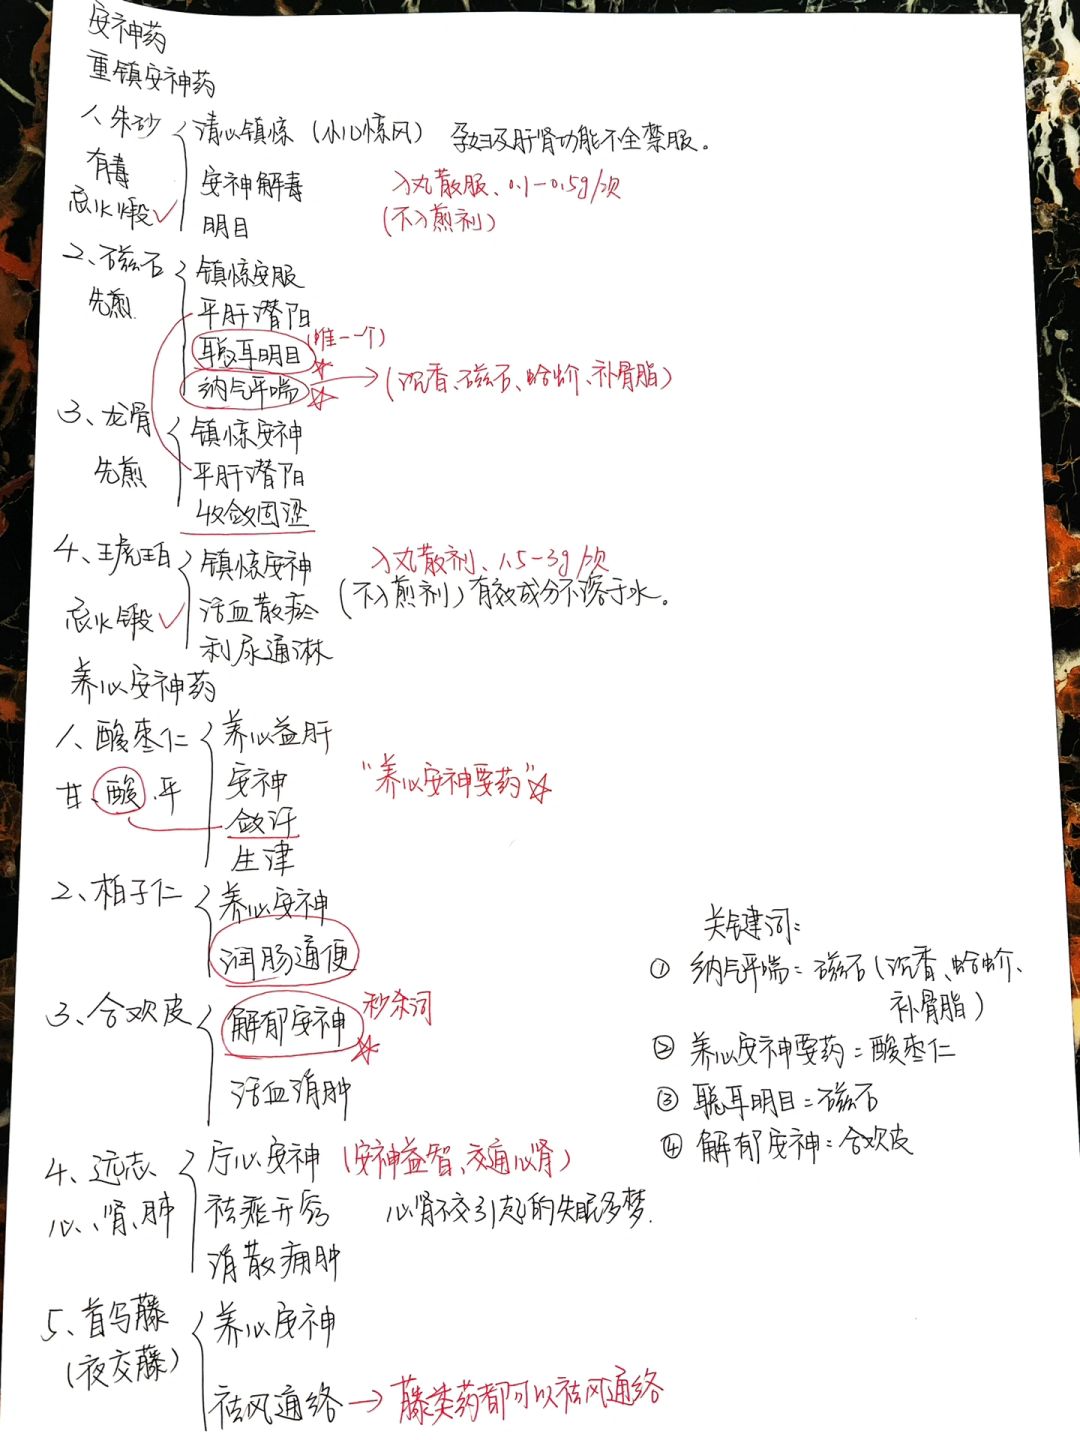 安神药
重镇安神药
1、朱砂 清心镇惊（小心惊风） 孕妇及肝肾功能不全禁服。
有毒 安神解毒 入丸散服、0.1-0.5g/次
忌火煅✓ 明目 （不入煎剂）
2、磁石 镇惊安服
先煎 平肝潜阳
聪耳明目（唯一一个）
纳气平喘 → （沉香、磁石、蛤蚧、补骨脂）
3、龙骨 镇惊安神
先煎 平肝潜阳
收敛固涩
4、琥珀 镇惊安神 入丸散剂、1.5-3g/次
忌火锻✓ 活血散瘀 （不入煎剂）有效成分不溶于水。
利尿通淋
养心安神药
1、酸枣仁 养心益肝
甘、酸、平 安神 “养心安神要药”☆
敛汗
生津
2、柏子仁 养心安神
润肠通便
3、合欢皮 解郁安神 秒杀词
活血消肿
4、远志 宁心安神（安神益智、交通心肾）
心、肾、肺 祛痰开窍 心肾不交引起的失眠多梦.
消散痈肿
5、首乌藤 养心安神
（夜交藤） 祛风通络 → 藤类药都可以祛风通络
关键词：
① 纳气平喘=磁石（沉香、蛤蚧、
补骨脂）
② 养心安神要药=酸枣仁
③ 聪耳明目=磁石
④ 解郁安神=合欢皮